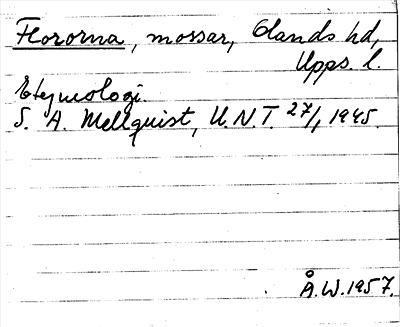 Flororna, mossar, Olands hd,
Upps. l.
Etymologi.
S. A. Mellquist, U.N.T. 27/1, 1945.
Å.W. 1957.